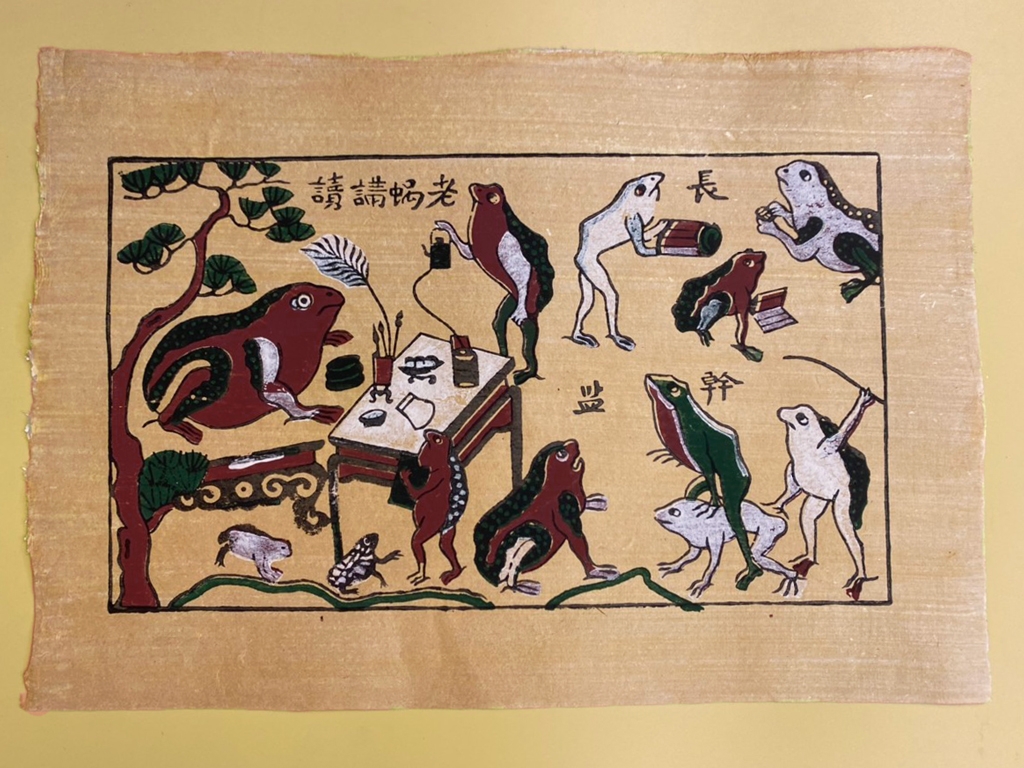 老蝸講讀
長
幹